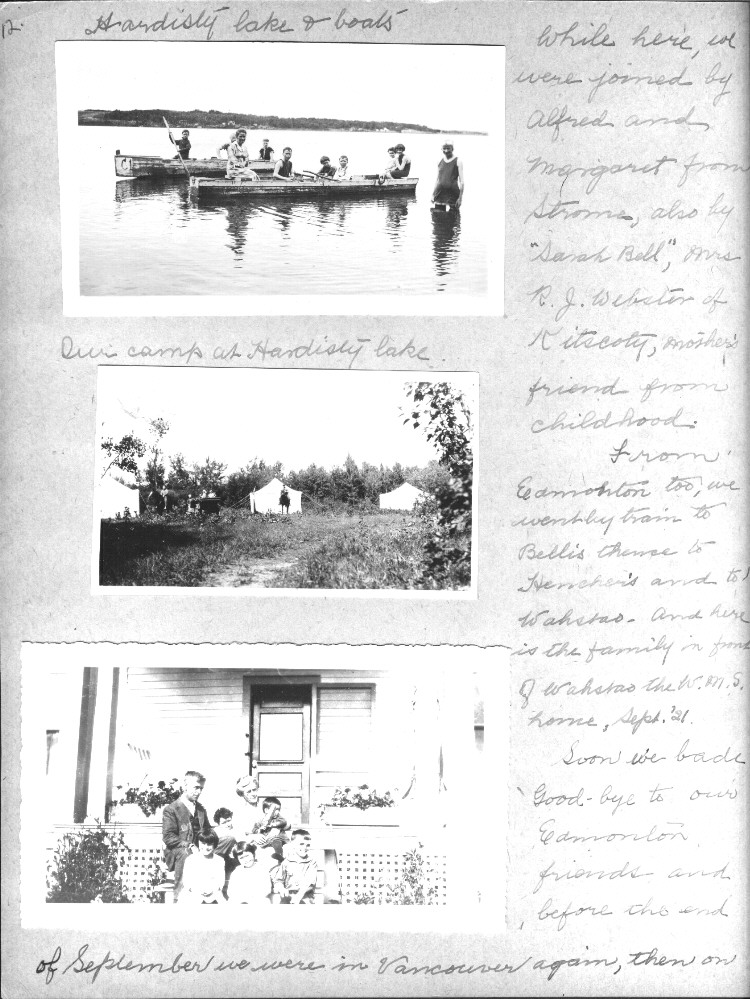 12.
Hardisty lake & boats
Our camp at Hardisty lake.
While here, we
were joined by
Alfred and
Margaret from
Strome, also by
"Sarah Bell", Mrs
R. J. Webster of
Kitscoty, mother's
friend from
childhood.
From
Edmonton too, we
went by train to
Bellis thence to
Hencher's and to
Wahstao - And here
is the family in front
of Wahstao the W.M.S.
home, Sept. '21.
Soon we bade
Good-bye to our
Edmonton
friends and
before the end
of September we were in Vancouver again, then on